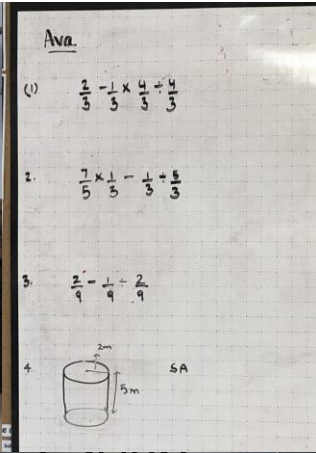 Ava
(1) 2/3 - 1/3 × 4/3 ÷ 4/3
2. 7/5 × 1/3 - 1/3 ÷ 5/3
3. 2/9 - 1/9 ÷ 2/9
4. 2m
5m
SA